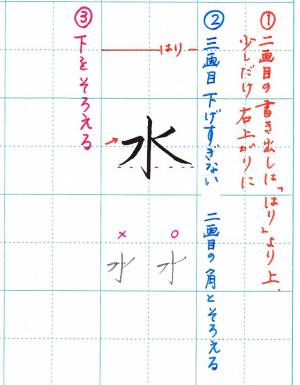 ①二画目の書き出しは「はり」より上
少しだけ右上がりに
②三画目下げすぎない 二画目の角とそろえる
はり
水
○ 水
× 水
③下をそろえる